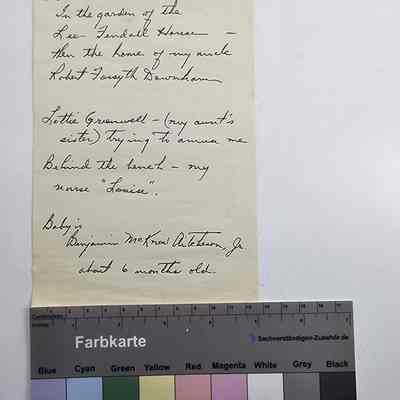 In the garden of the
Lee Fendall House —
then the home of my uncle
Robert Forsyth Downham
Lottie Greenwell - (my aunt's
sister) trying to amuse me
Behind the bench - my
nurse "Louise".
Baby is
Benjamin McKnew Aitcheson, Jr.
about 6 months old.
Centimetres
Inches
Farbkarte
Sachverständigen-Zubehör.de
Blue Cyan Green Yellow Red Magenta White Grey Black